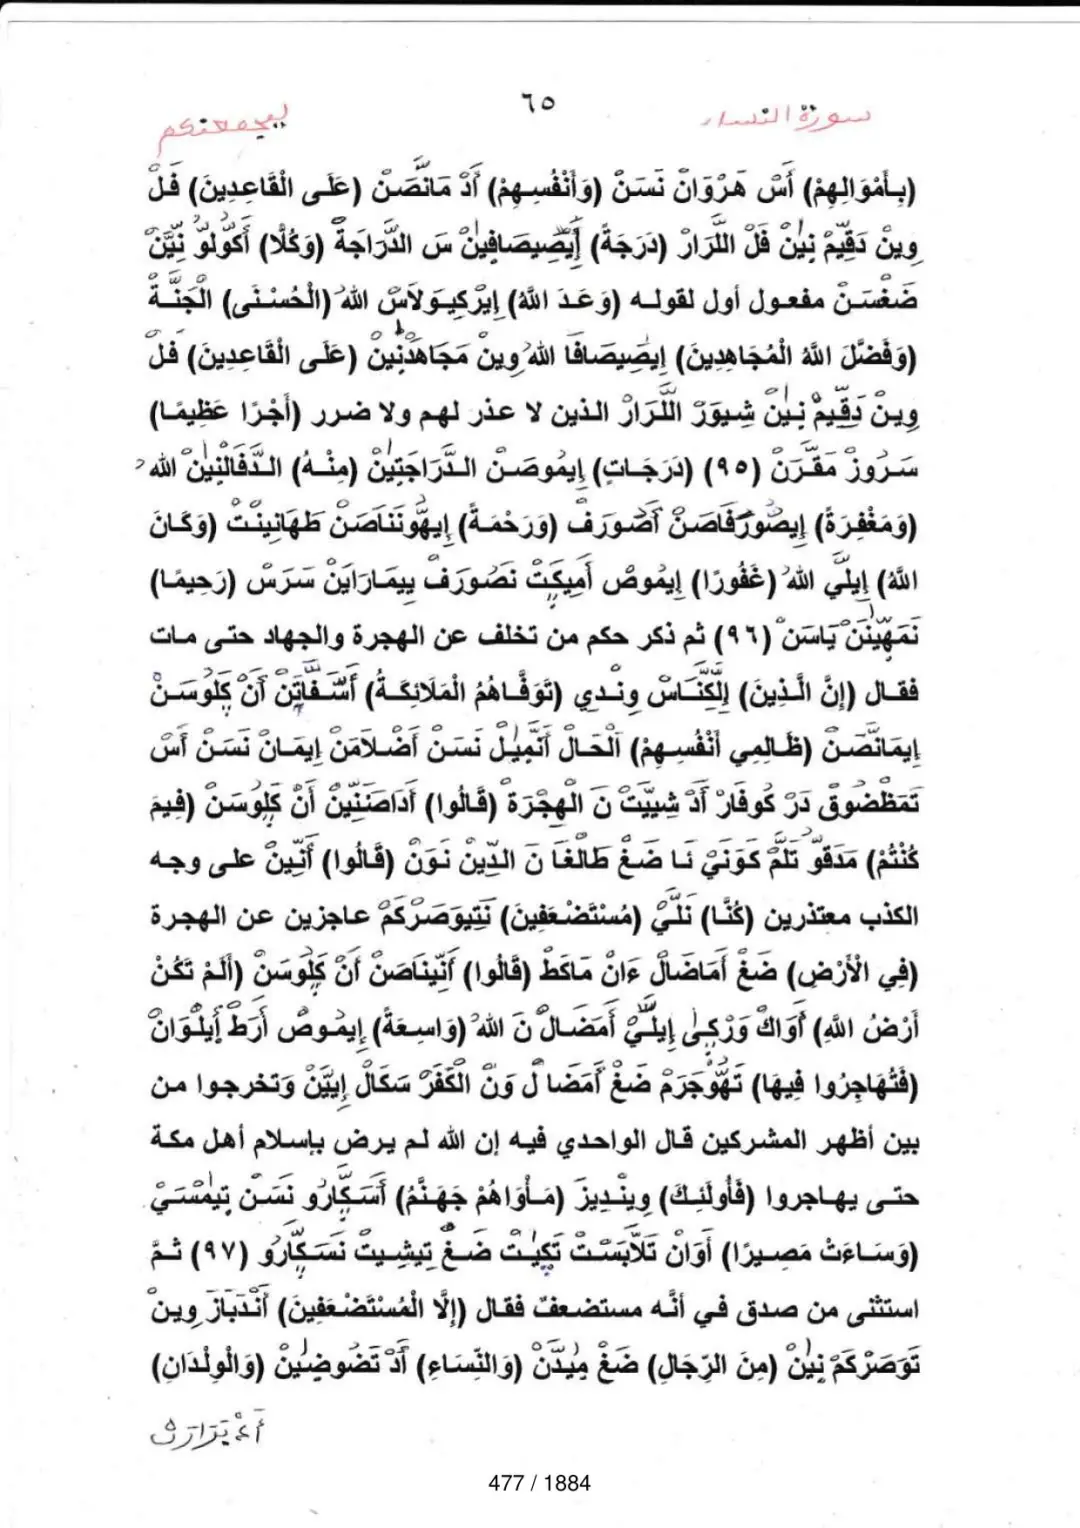 ٦٥
سورة النساء
(بِأَمْوَالِهِمْ) أَسْ هَرْوَانْ نَسَنْ (وَأَنْفُسِهِمْ) أَدْ مَانَّصَنْ (عَلَى الْقَاعِدِينَ) فَلْ
وِينْ دَقِّيمْ نِينْ فَلْ اللَّرَارْ (دَرَجَةً) إِيصِيصَافِينْ سَ الدَّرَاجَةْ (وَكُلًّا) أَكُولُوْ نِيَّنْ
ضَغْسَنْ مفعول أول لقوله (وَعَدَ اللَّهُ) إِيرْكِيوَلَاسْ اللهُ (الْحُسْنَى) الْجَنَّةَ
(وَفَضَّلَ اللَّهُ الْمُجَاهِدِينَ) إِيصِيصَافَا اللهُ وِينْ مَجَاهَدْنِينْ (عَلَى الْقَاعِدِينَ) فَلْ
وِينْ دَقِّيمْ نِينْ شِيوَرْ اللَّرَارْ الذين لا عذر لهم ولا ضرر (أَجْرًا عَظِيمًا)
سَرُوزْ مَقَّرَنْ (٩٥) (دَرَجَاتٍ) إِيمُوصَنْ الدَّرَاجَتِينْ (مِنْهُ) الدَّفَالْنِينْ اللهُ
(وَمَغْفِرَةً) إِيصُورَفَاصَنْ أَضُورَفْ (وَرَحْمَةً) إِيهُونَنَاصَنْ طَهَانِينْتْ (وَكَانَ
اللَّهُ) إِيلَّيْ اللهُ (غَفُورًا) إِيمُوصْ أَمِيكَتْ نَصُورَفْ بِيمَارَايَنْ سَرَسْ (رَحِيمًا)
نَمَهَيْنَنْ يَاسَنْ (٩٦) ثم ذكر حكم من تخلف عن الهجرة والجهاد حتى مات
فقال (إِنَّ الَّذِينَ) إِلْكِنَّاسْ وِنْدِي (تَوَفَّاهُمُ الْمَلَائِكَةُ) أَسَّفَاتَنْ أَنْ كَلُوسَنْ
إِيمَانَّصَنْ (ظَالِمِي أَنْفُسِهِمْ) اَلْحَالْ أَنْمِيلْ نَسَنْ أَضْلَامَنْ إِيمَانْ نَسَنْ أَسْ
تَمَظْضُوقْ دَرْ كُوفَارْ أَدْ شِييَتْ نَ الْهِجْرَةْ (قَالُوا) أَدَاصَنَّيْنْ أَنْ كَلُوسَنْ (فِيمَ
كُنْتُمْ) مَدَقَوْ تَلَمْ كَوَنَيْ نَا ضَغْ طَالْغَا نَ الدِّينْ نَوَنْ (قَالُوا) أَنِّينْ على وجه
الكذب معتذرين (كُنَّا) نَلَّيْ (مُسْتَضْعَفِينَ) نَتِيوَصَرْكَمْ عاجزين عن الهجرة
(فِي الْأَرْضِ) ضَغْ أَمَاضَالْ ءَانْ مَاكَطْ (قَالُوا) أَنِّينَاصَنْ أَنْ كَلُوسَنْ (أَلَمْ تَكُنْ
أَرْضُ اللَّهِ) أَوَاكْ وَرْكِى إِيلَّيْ أَمَضَالْ نَ اللهُ (وَاسِعَةً) إِيمُوصْ أَرَطْ أَيلْوَانْ
(فَتُهَاجِرُوا فِيهَا) تَهُوجَرَمْ ضَغْ أَمَضَالْ وَنْ الْكَفَرْ سَكَالْ إِييَّنْ وَتخرجوا من
بين أظهر المشركين قال الواحدي فيه إن الله لم يرض بإسلام أهل مكة
حتى يهاجروا (فَأُولَئِكَ) وِينْدِيزْ (مَأْوَاهُمْ جَهَنَّمُ) أَسَكَّارُو نَسَنْ تِيمْسَيْ
(وَسَاءَتْ مَصِيرًا) أَوَانْ تَلَّابَسْتْ تَكِيتْ ضَغْ تِيشِيتْ نَسَكَّارُو (٩٧) ثمَّ
استثنى من صدق في أنَّه مستضعفٌ فقال (إِلَّا الْمُسْتَضْعَفِينَ) أَنْدَبَازَ وِينْ
تَوَصَرْكَمْ نِينْ (مِنَ الرِّجَالِ) ضَغْ مِيدَنْ (وَالنِّسَاءِ) أَدْ تَضُوضِينْ (وَالْوِلْدَانِ)
477 / 1884